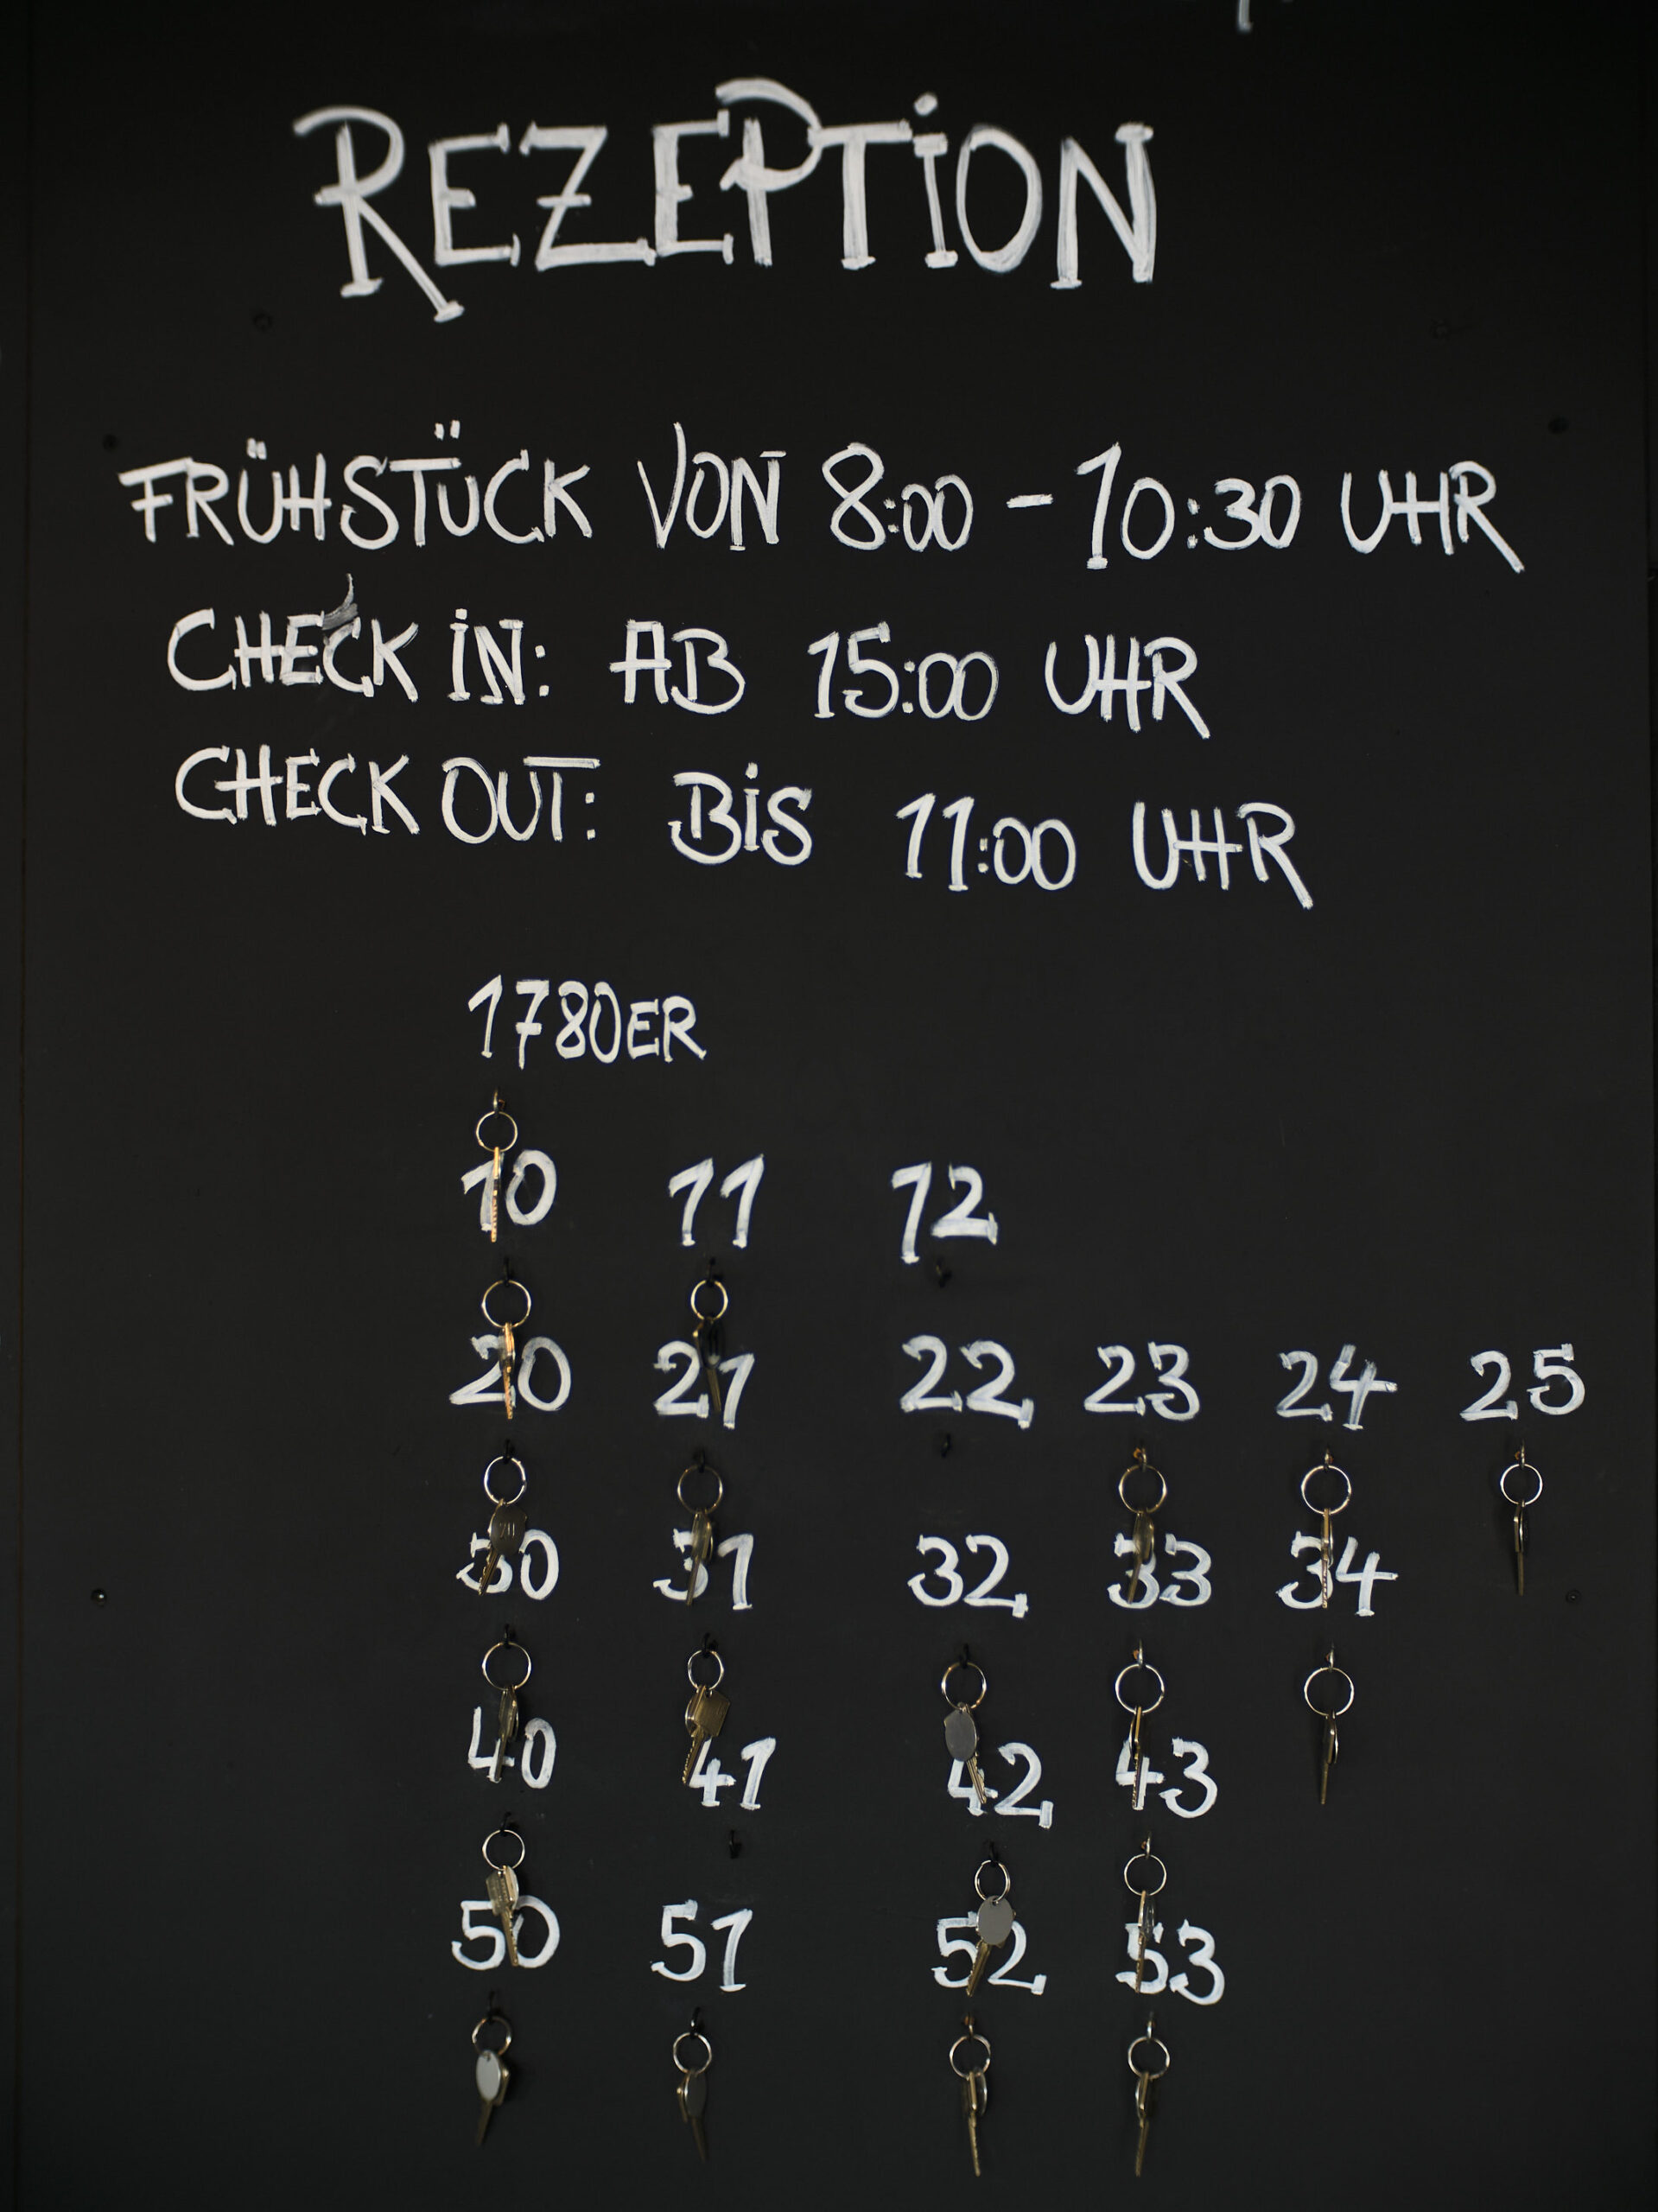 REZEPTION
FRÜHSTÜCK VON 8:00 - 10:30 UHR
CHECK IN: AB 15:00 UHR
CHECK OUT: BIS 11:00 UHR
1780ER
10 11 12
20 21 22 23 24 25
30 31 32 33 34
40 41 42 43
50 51 52 53